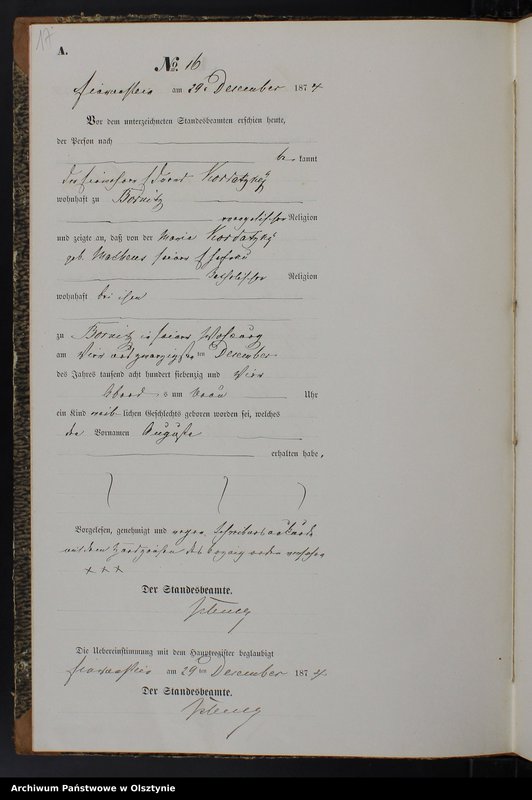 17
A.
No. 16
am 29ten December 1874
Vor dem unterzeichneten Standesbeamten erschien heute,
der Person nach
be kannt
der Eduard Kordatzky
wohnhaft zu Bornitz
evangelischer Religion
und zeigte an, daß von der Maria Kordatzky
geb. seiner Ehefrau
katholischer Religion
wohnhaft bei ihm
zu Bornitz in seiner Wohnung
am vier und zwanzigsten ten December
des Jahres tausend acht hundert siebenzig und vier
Abend s um neun Uhr
ein Kind weib lichen Geschlechts geboren worden sei, welches
den Vornamen Auguste
erhalten habe.
Vorgelesen, genehmigt und wegen
mit dem Handzeichen des versehen
+ + +
Der Standesbeamte.
Die Uebereinstimmung mit dem Hauptregister beglaubigt
am 29 ten December 1874
Der Standesbeamte.
Archiwum Państwowe w Olsztynie